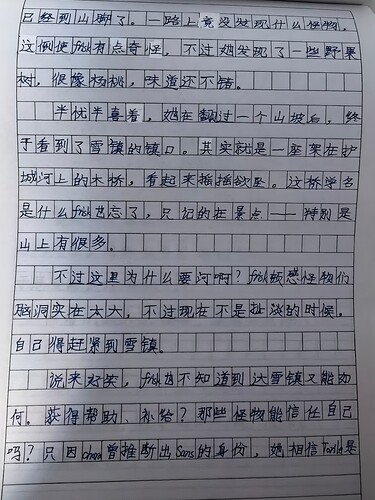 已经到山脚了。一路上竟没发现什么怪物，
这倒使frisk有点奇怪，不过她发现了一些野果
树，很像杨桃，味道还不错。
半忧半喜着，她在翻过一个山坡后，终
于看到了雪镇的镇口。其实就是一座架在护
城河上的木桥，看起来摇摇欲坠。这桥学名
是什么frisk也忘了，只记的在景点——特别是
山上有很多。
不过这里为什么要河啊？frisk顿感怪物们
脑洞实在太大，不过现在不是扯淡的时候。
自己得赶紧到雪镇。
说来好笑，frisk也不知道到达雪镇又能如
何。获得帮助、补给？那些怪物能信任自己
吗？只因chara曾推断出Sans的身份，她相信Toriel是